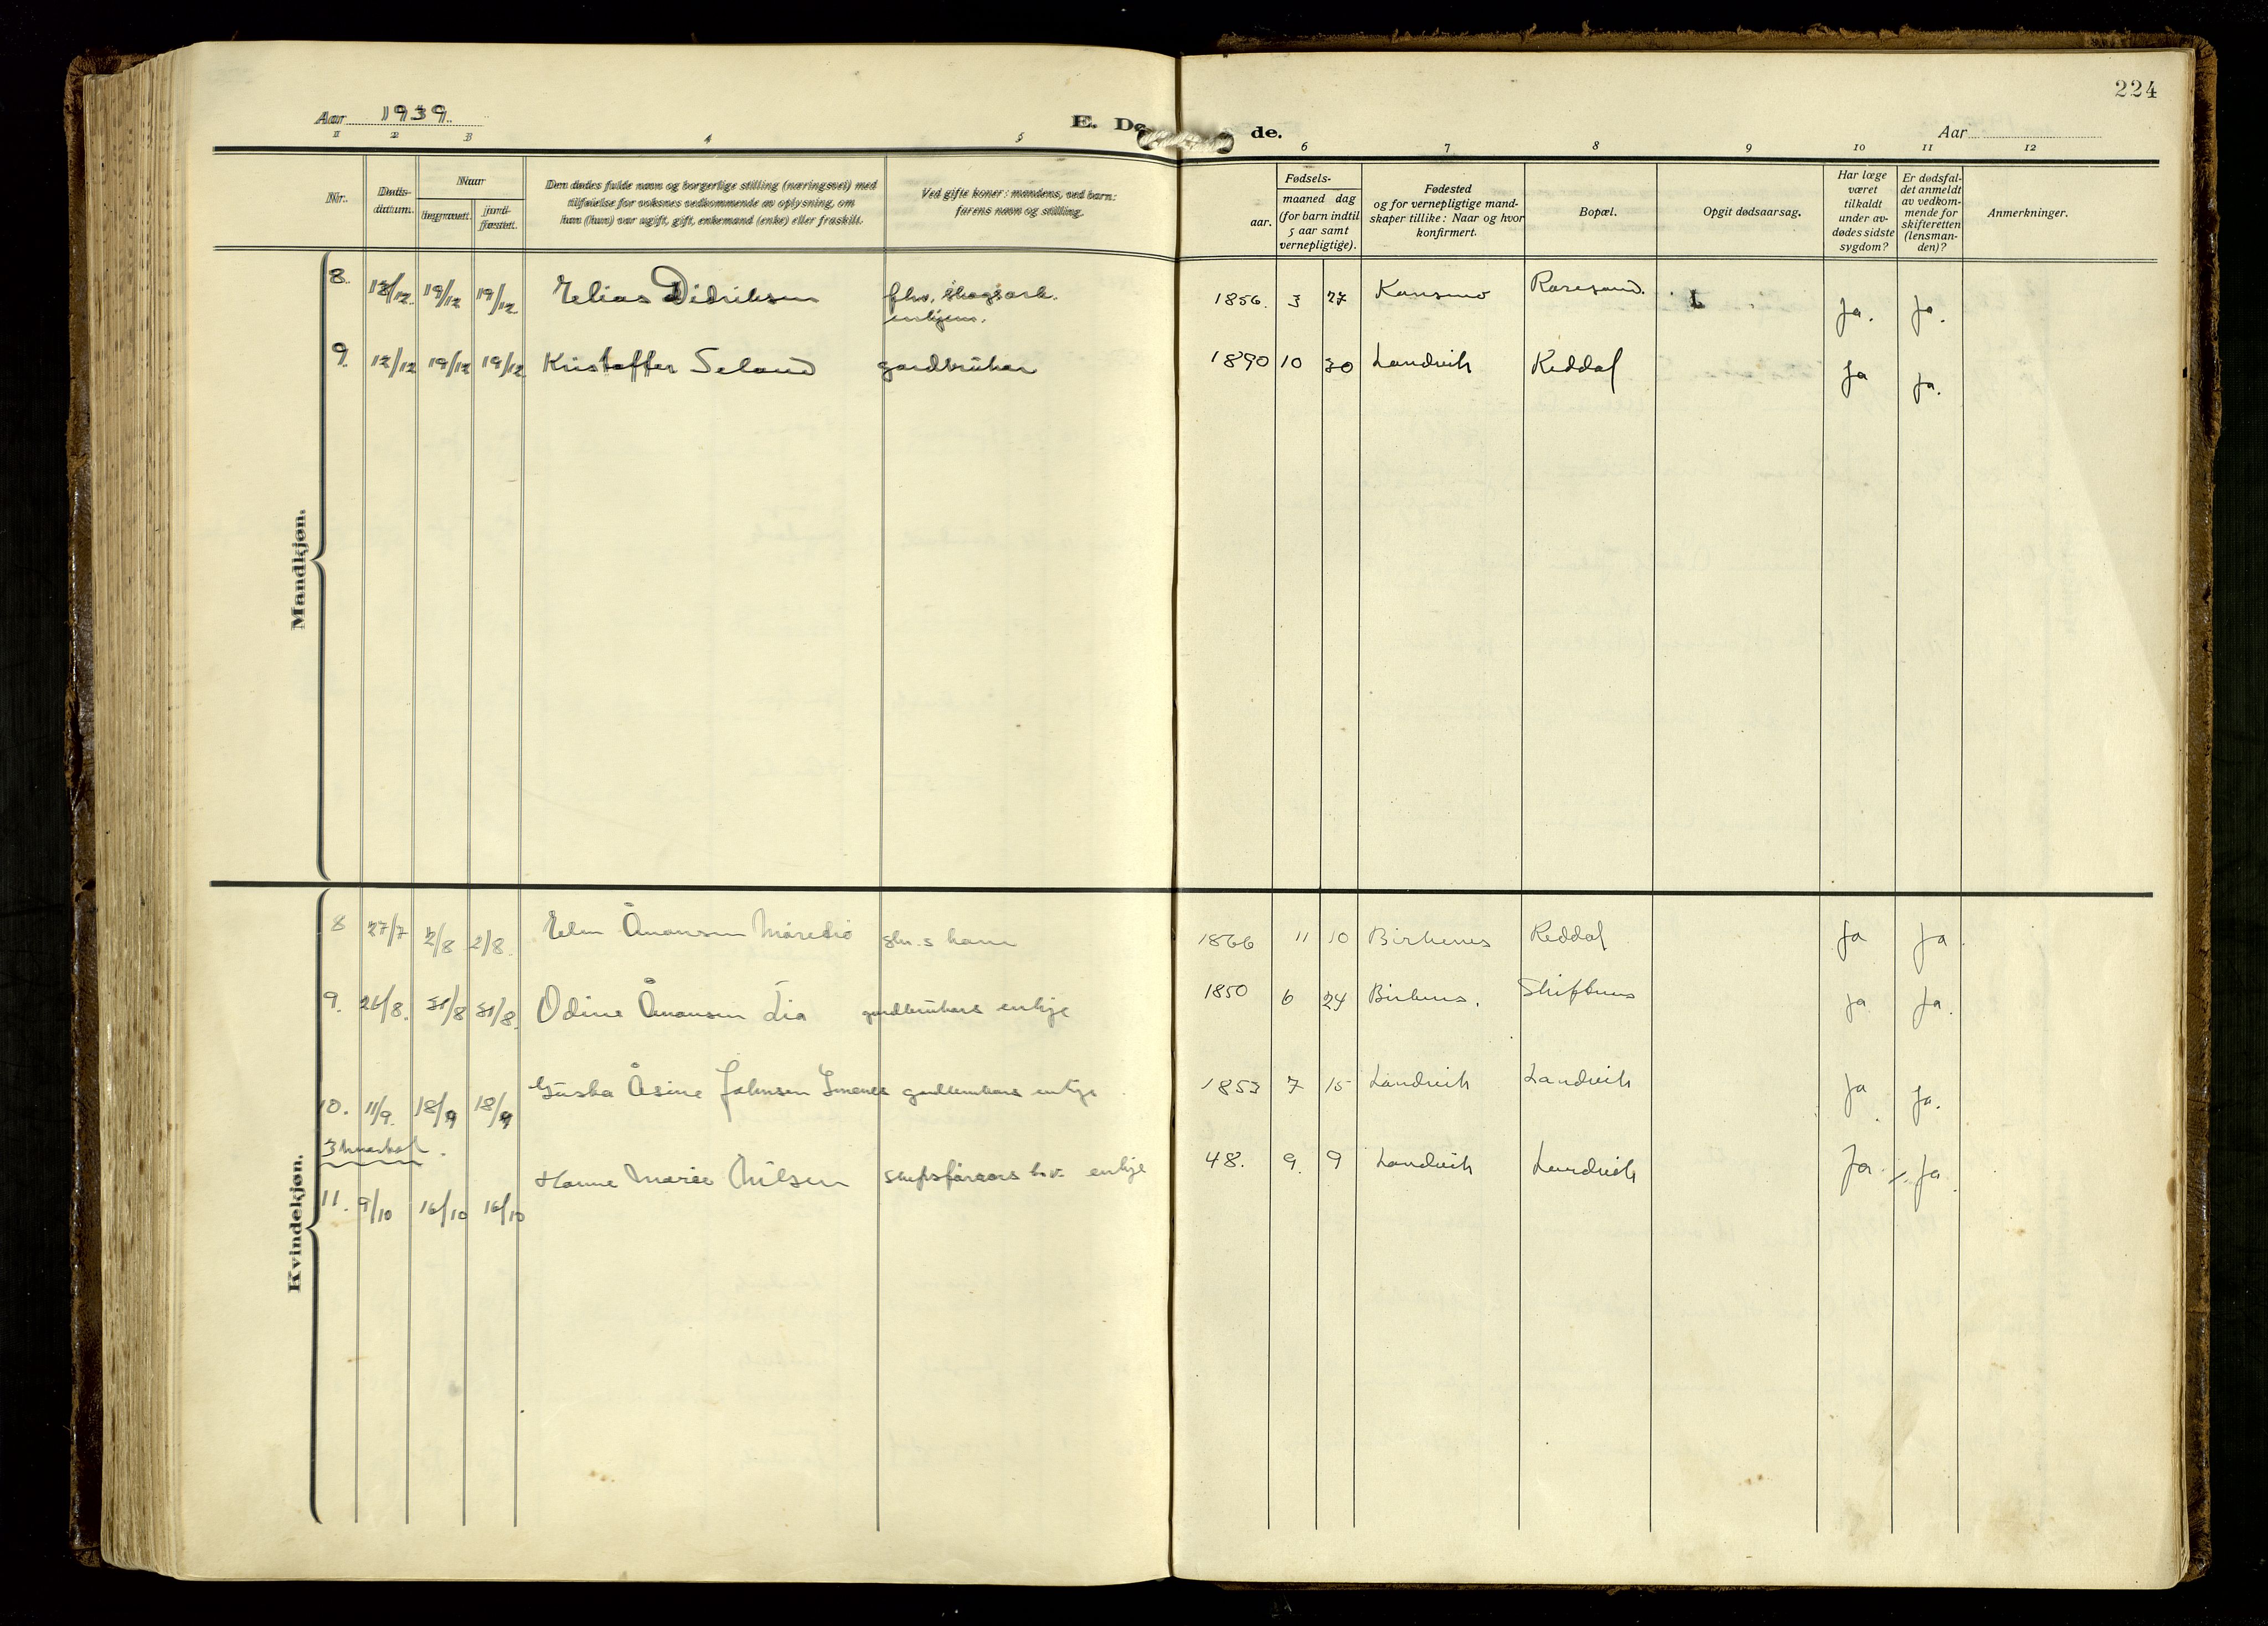 224
Aar 1939.
E. De de.
Aar
1 2 3 4 5 6 7 8 9 10 11 12
Nr.
Døds-
datum.
Naar
begravet.
jord-
fæstet.
Den dødes fulde navn og borgerlige stilling (næringsvei) med
tilføielse for voksnes vedkommende av oplysning, om
han (hun) var ugift, gift, enkemand (enke) eller fraskilt.
Ved gifte koner: mandens, ved barn:
farens navn og stilling.
Fødsels-
aar.
maaned dag
(for barn indtil
5 aar samt
vernepligtige).
Fødested
og for vernepligtige mand-
skaper tillike: Naar og hvor
konfirmert.
Bopæl.
Opgit dødsaarsag.
Har læge
været
tilkaldt
under av-
dødes sidste
sygdom?
Er dødsfal-
det anmeldt
av vedkom-
mende for
skifteretten
(lensman-
den)?
Anmerkninger.
Mandkjøn.
8. 19/12 19/12 Elias Didriksen fhv. skogsarb. 1856. 3 27 Ja. Ja.
9. 19/12 19/12 Kristoffer Seland gardbruker 1890 10 30 Landvik Reddal Ja Ja.
Kvindekjøn.
8 27/7 2/8 2/8 Ånonsen 1866 11 10 Birkenes Reddal Ja Ja.
9. 26/8. 31/8 31/8. Odine Ånonsen Lia gardbrukars enkje 1850 6 24 Birkenes. Skiftenes Ja Ja.
10. 11/9. 18/9 18/9 Åsine Johnsen Imenes gardbrukars enkje 1853 7 15 Landvik Landvik Ja Ja.
3 kvartal.
11. 9/10 16/10 16/10 Hanne Marie Nilsen skipsførars enkje 48. 9. 9 Landvik Landvik Ja Ja.